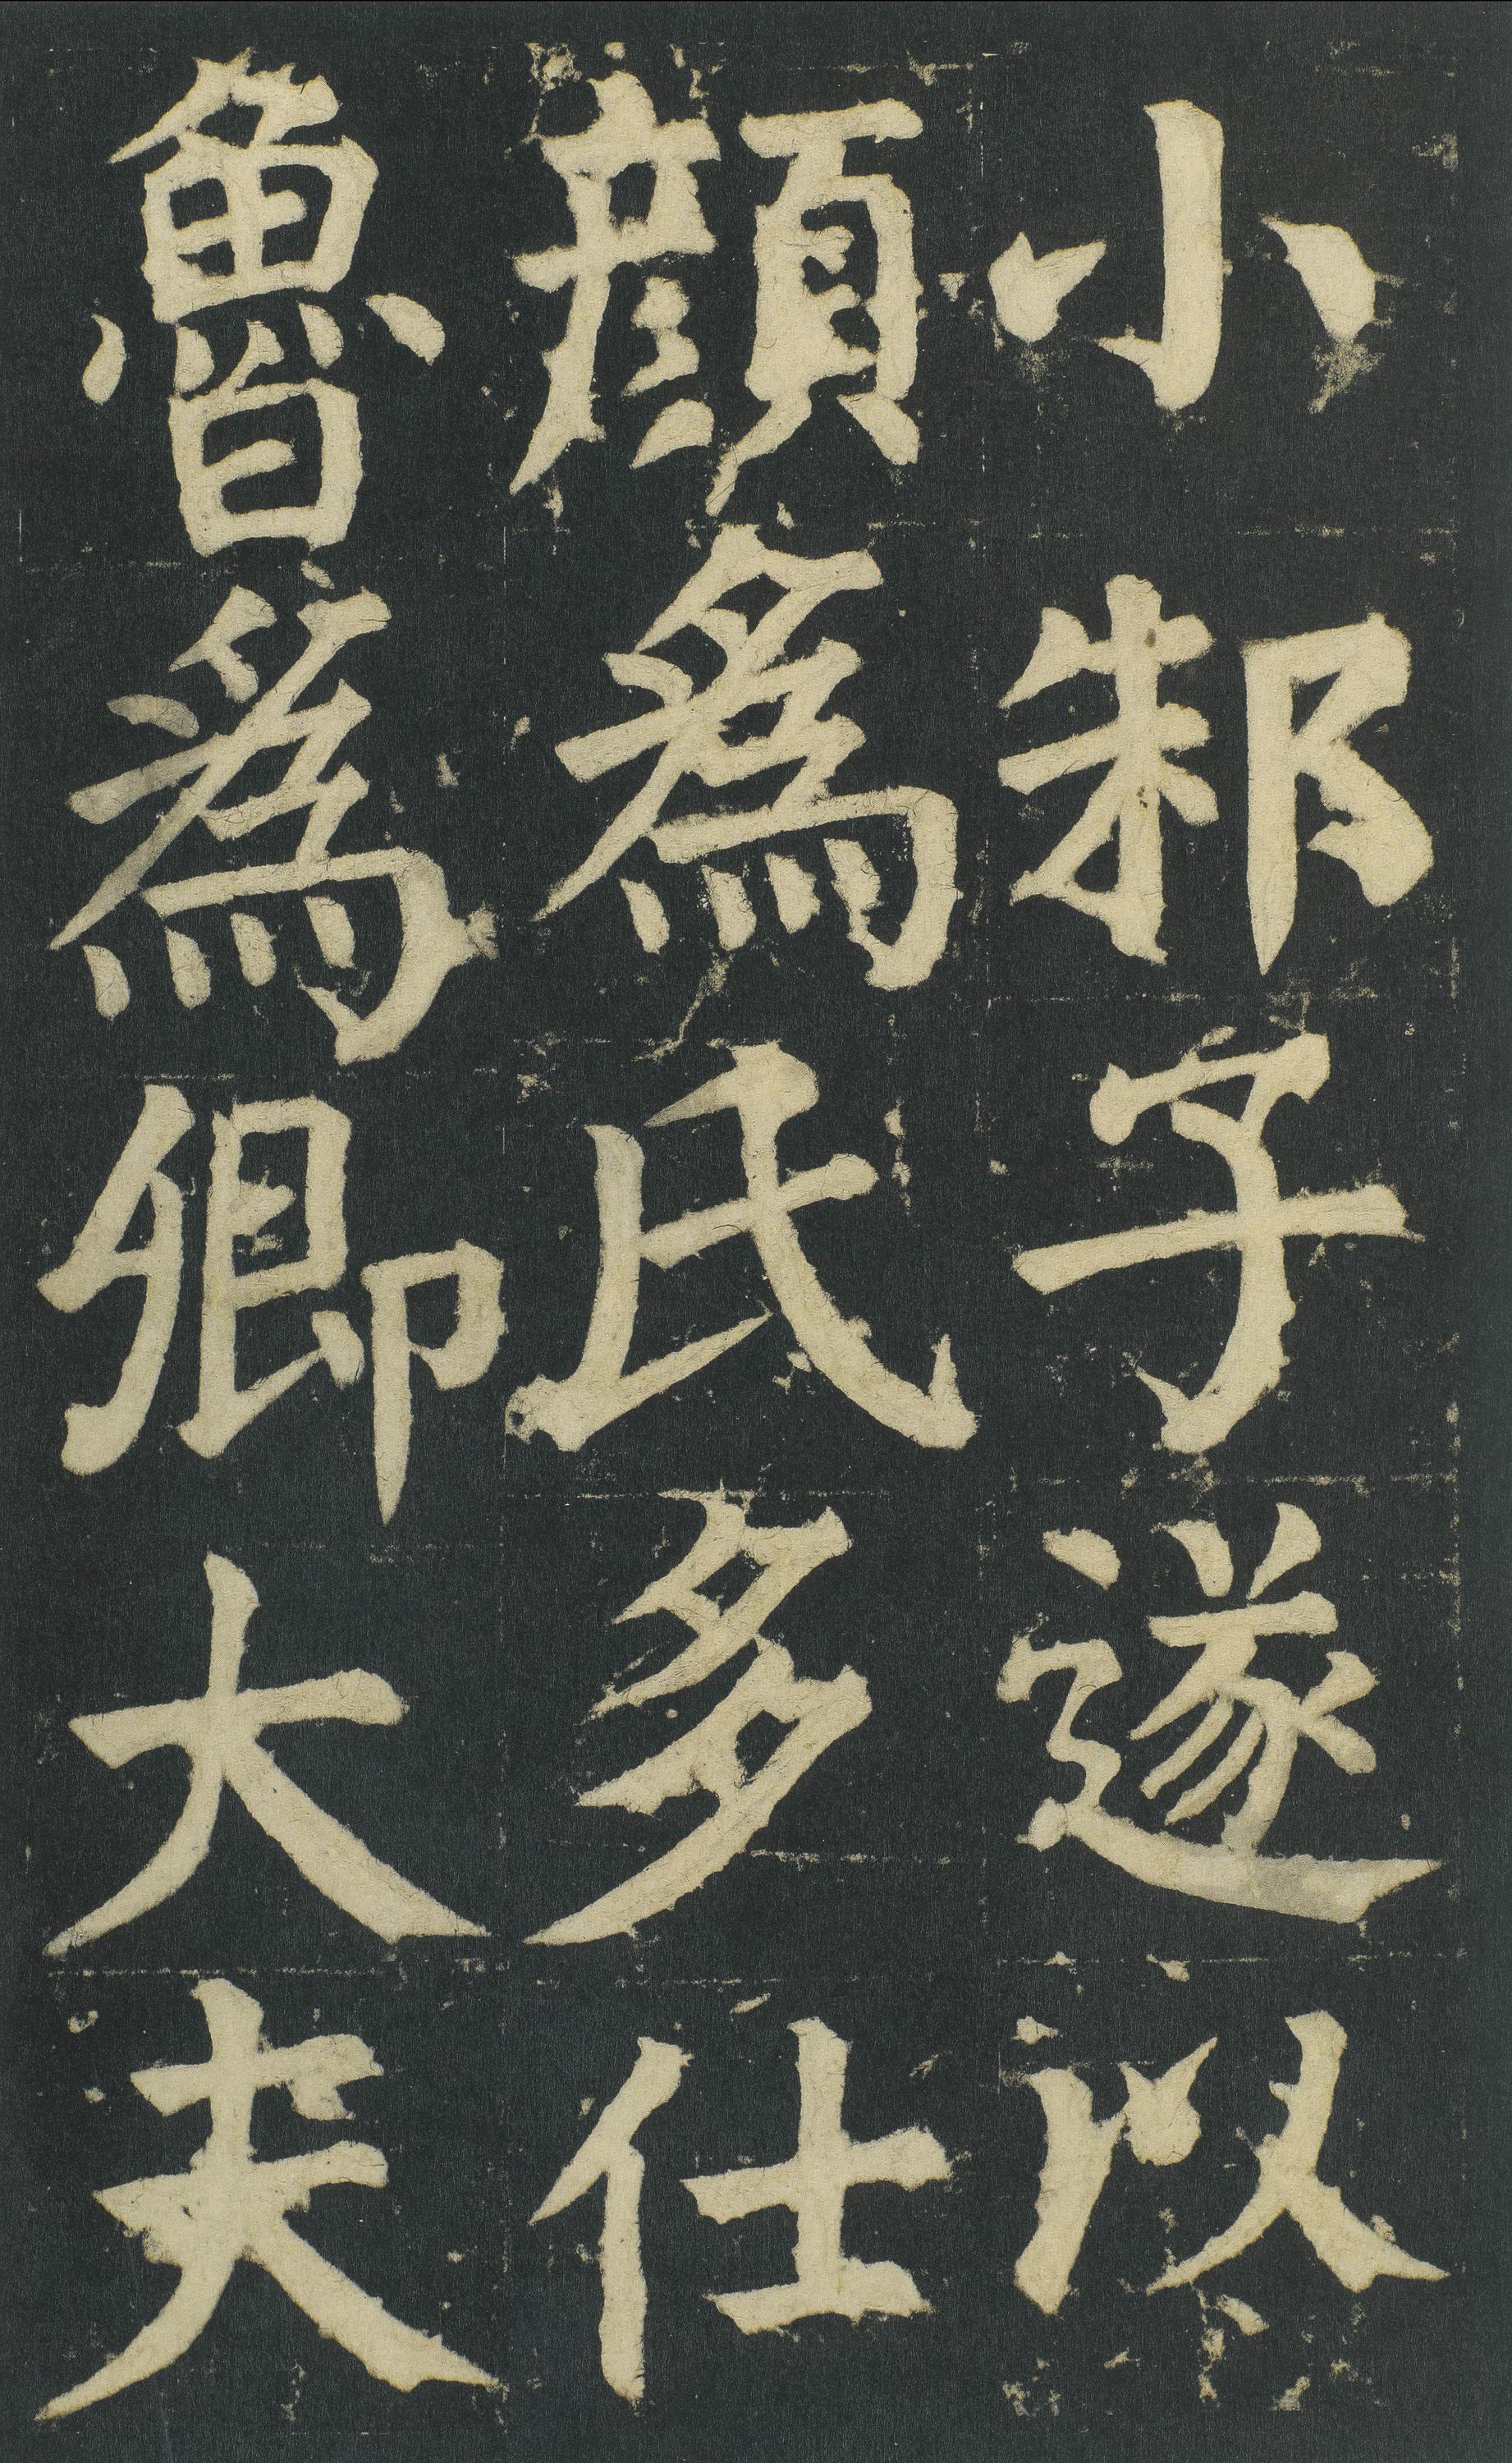 小邾子遂以
顏為氏多仕
魯為卿大夫